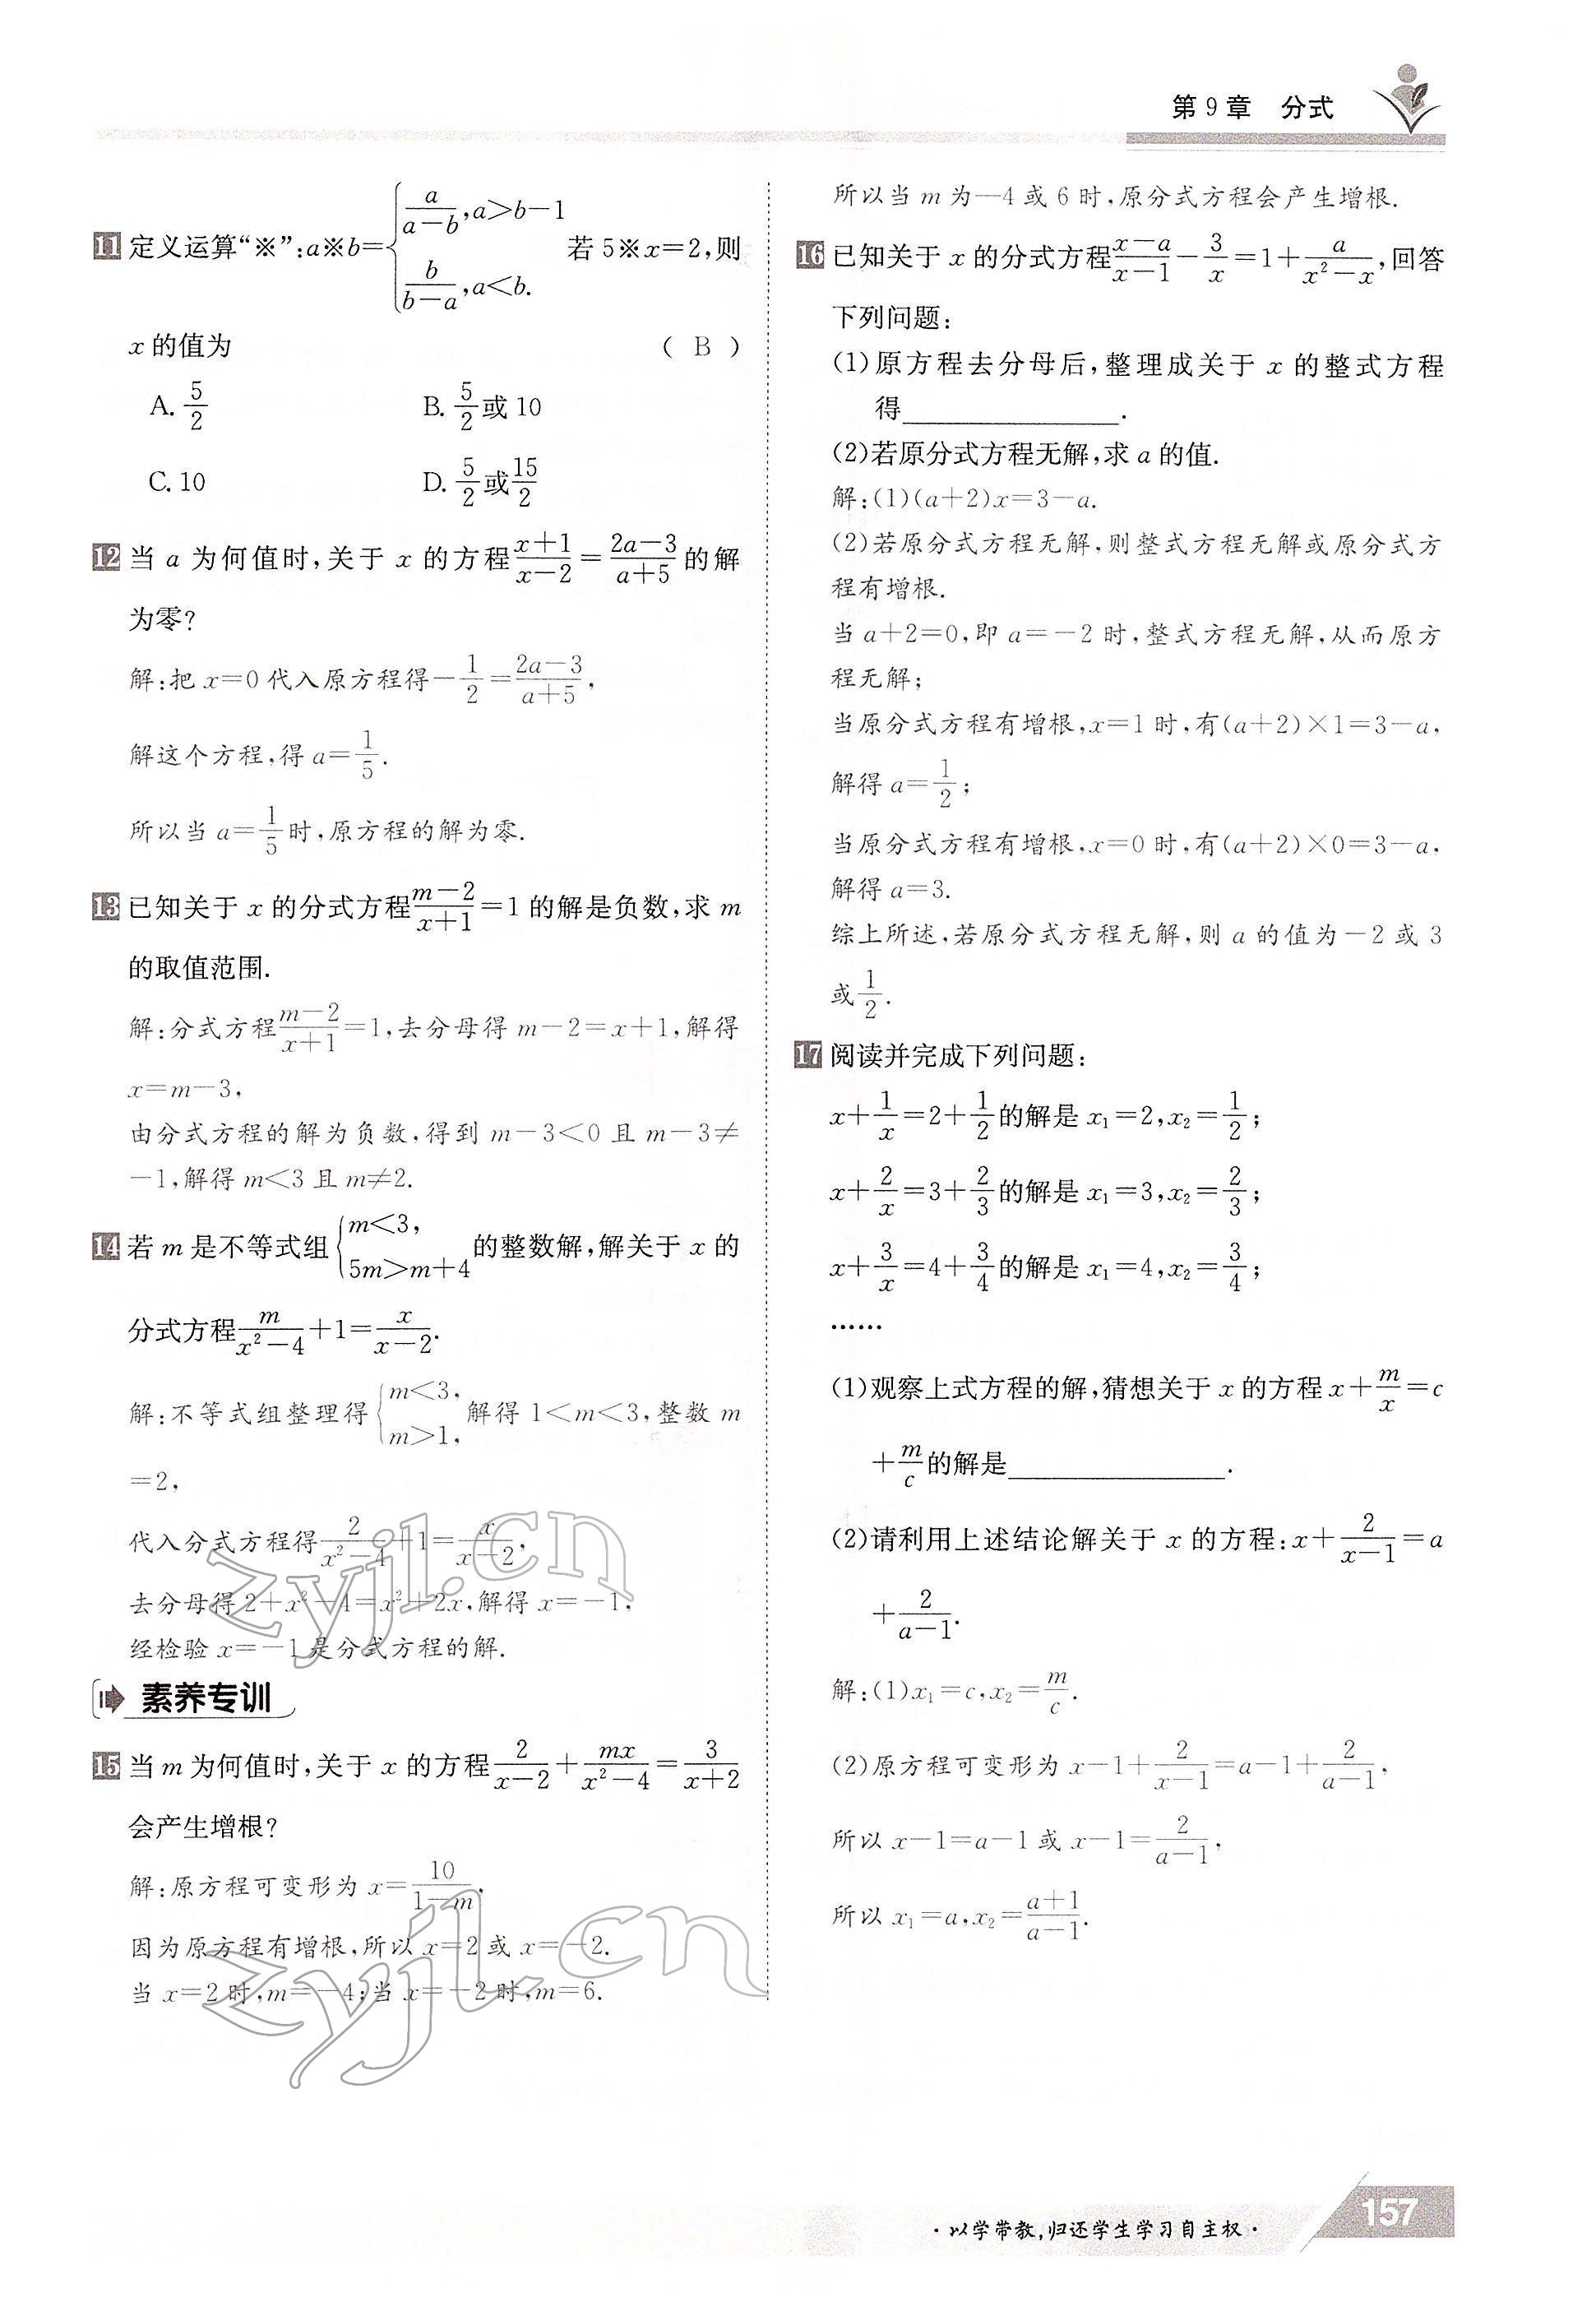 第9章 分式
11 定义运算“※”:a※b={a/(a-b),a>b-1 b/(b-a),a<b. 若5※x=2,则
x的值为 ( B )
A. 5/2 B. 5/2或10
C. 10 D. 5/2或15/2
12 当a为何值时,关于x的方程(x+1)/(x-2)=(2a-3)/(a+5)的解
为零?
解:把x=0代入原方程得-1/2=(2a-3)/(a+5),
解这个方程,得a=1/5.
所以当a=1/5时,原方程的解为零.
13 已知关于x的分式方程(m-2)/(x+1)=1的解是负数,求m
的取值范围.
解:分式方程(m-2)/(x+1)=1,去分母得m-2=x+1,解得
x=m-3,
由分式方程的解为负数,得到m-3<0且m-3≠
-1,解得m<3且m≠2.
14 若m是不等式组{m<3, 5m>m+4的整数解,解关于x的
分式方程m/(x²-4)+1=x/(x-2).
解:不等式组整理得{m<3, m>1,解得1<m<3,整数m
=2,
代入分式方程得2/(x²-4)+1=x/(x-2),
去分母得2+x²-4=x²+2x,解得x=-1,
经检验x=-1是分式方程的解.
素养专训
15 当m为何值时,关于x的方程2/(x-2)+mx/(x²-4)=3/(x+2)
会产生增根?
解:原方程可变形为x=10/(1-m),
因为原方程有增根,所以x=2或x=-2.
当x=2时,m=-4;当x=-2时,m=6.
所以当m为-4或6时,原分式方程会产生增根.
16 已知关于x的分式方程(x-a)/(x-1)-3/x=1+a/(x²-x),回答
下列问题:
(1)原方程去分母后,整理成关于x的整式方程
得________________.
(2)若原分式方程无解,求a的值.
解:(1)(a+2)x=3-a.
(2)若原分式方程无解,则整式方程无解或原分式方
程有增根.
当a+2=0,即a=-2时,整式方程无解,从而原方
程无解;
当原分式方程有增根,x=1时,有(a+2)×1=3-a,
解得a=1/2;
当原分式方程有增根,x=0时,有(a+2)×0=3-a,
解得a=3.
综上所述,若原分式方程无解,则a的值为-2或3
或1/2.
17 阅读并完成下列问题:
x+1/x=2+1/2的解是x₁=2,x₂=1/2;
x+2/x=3+2/3的解是x₁=3,x₂=2/3;
x+3/x=4+3/4的解是x₁=4,x₂=3/4;
……
(1)观察上式方程的解,猜想关于x的方程x+m/x=c
+m/c的解是________________.
(2)请利用上述结论解关于x的方程:x+2/(x-1)=a
+2/(a-1).
解:(1)x₁=c,x₂=m/c.
(2)原方程可变形为x-1+2/(x-1)=a-1+2/(a-1),
所以x-1=a-1或x-1=2/(a-1),
所以x₁=a,x₂=(a+1)/(a-1).
zyjl.cn
zyjl.cn
·以学带教,归还学生学习自主权·
157